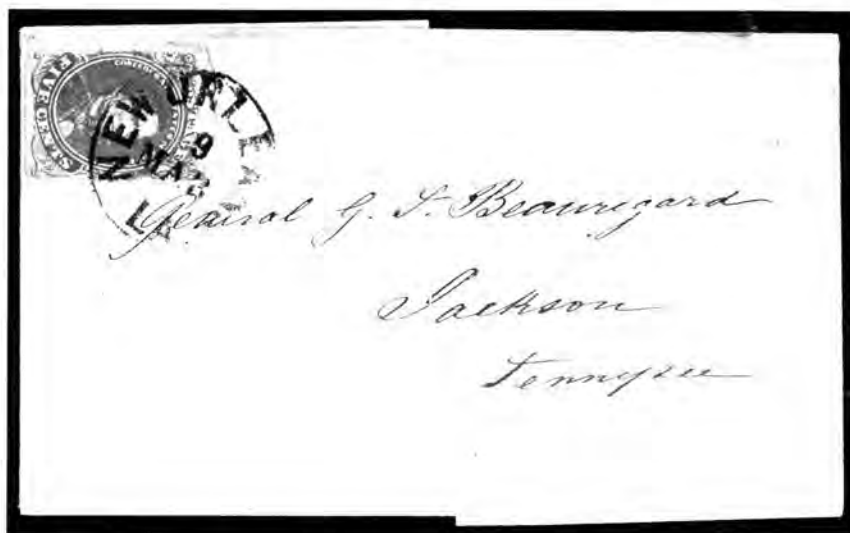 FIVE CENTS
NEW ORLEA
9
MAR
LA
General G. T. Beauregard
Jackson
Tennessee